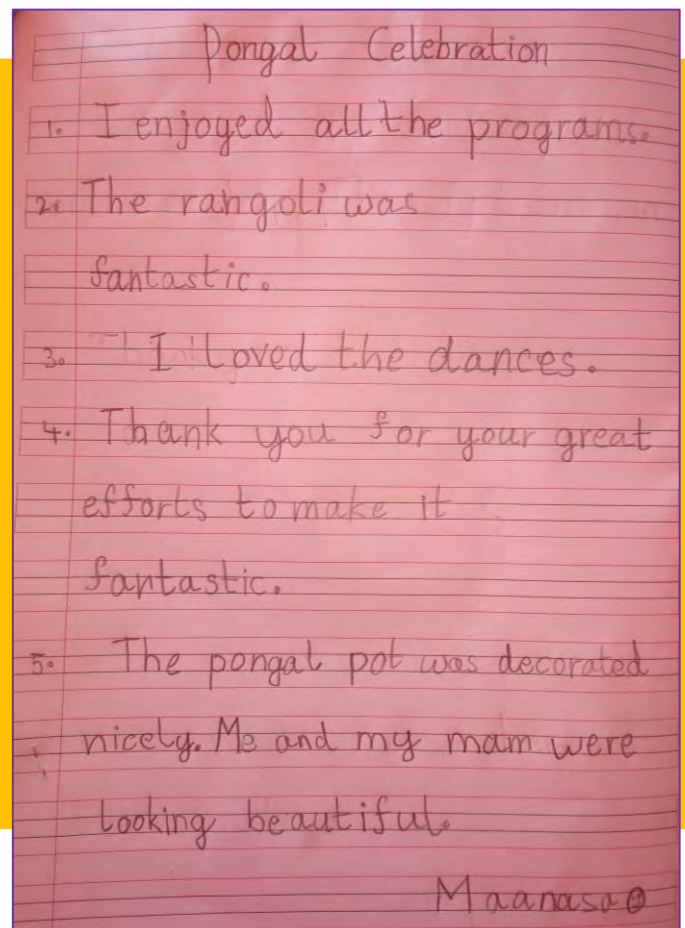 Pongal Celebration
1. I enjoyed all the programs.
2. The rangoli was
fantastic.
3. I loved the dances.
4. Thank you for your great
efforts to make it
fantastic.
5. The pongal pot was decorated
nicely. Me and my mam were
looking beautiful.
Maanasa